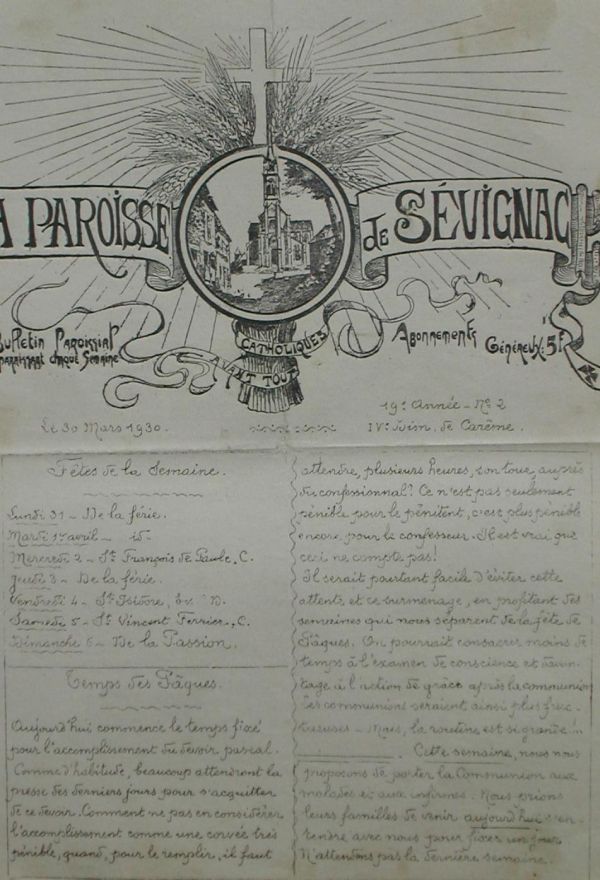 A PAROISSE
de SÉVIGNAC
Bulletin Paroissial
paraissant chaque Semaine
CATHOLIQUES
AVANT TOUT
Abonnements
Généreux: 5f
Le 30 Mars 1930.
19e Année - No 2
IVe Dim. de Carême.
Fêtes de la Semaine.
Lundi 31 - De la férie.
Mardi 1er avril - id-
Mercredi 2 - St François de Paule, C.
Jeudi 3 - De la férie.
Vendredi 4 - St Isidore, Ev. D.
Samedi 5 - St Vincent Ferrier, C.
Dimanche 6 - De la Passion.
Temps des Pâques.
Aujourd'hui commence le temps fixé
pour l'accomplissement du devoir pascal.
Comme d'habitude, beaucoup attendront la
presse des derniers jours pour s'acquitter
de ce devoir. Comment ne pas en considérer
l'accomplissement comme une corvée très
pénible, quand, pour le remplir, il faut
attendre, plusieurs heures, son tour, auprès
du confessionnal? Ce n'est pas seulement
pénible pour le pénitent, c'est plus pénible
encore pour le confesseur. Il est vrai que
ceci ne compte pas!
Il serait pourtant facile d'éviter cette
attente et ce surmenage, en profitant des
semaines qui nous séparent de la fête de
Pâques. On pourrait consacrer moins de
temps à l'examen de conscience et davan-
tage à l'action de grâce après la communion
les communions seraient ainsi plus fruc-
tueuses - Mais, la routine est si grande!..
Cette semaine, nous nous
proposons de porter la Communion aux
malades et aux infirmes. Nous prions
leurs familles de venir aujourd'hui s'en-
tendre avec nous pour fixer un jour
N'attendons pas la dernière semaine.